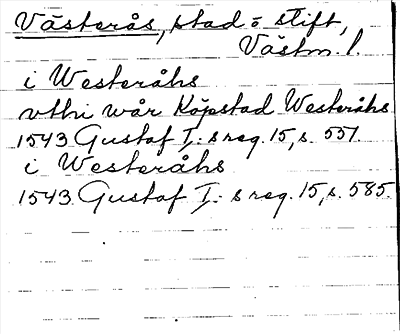 Västerås, stad o. stift,
Västm. l.
i Westeråhs
vthi wår Köpstad Westeråhs
1543 Gustaf I:s reg. 15, s. 551.
i Westeråhs
1543. Gustaf I:s reg. 15, s. 585.